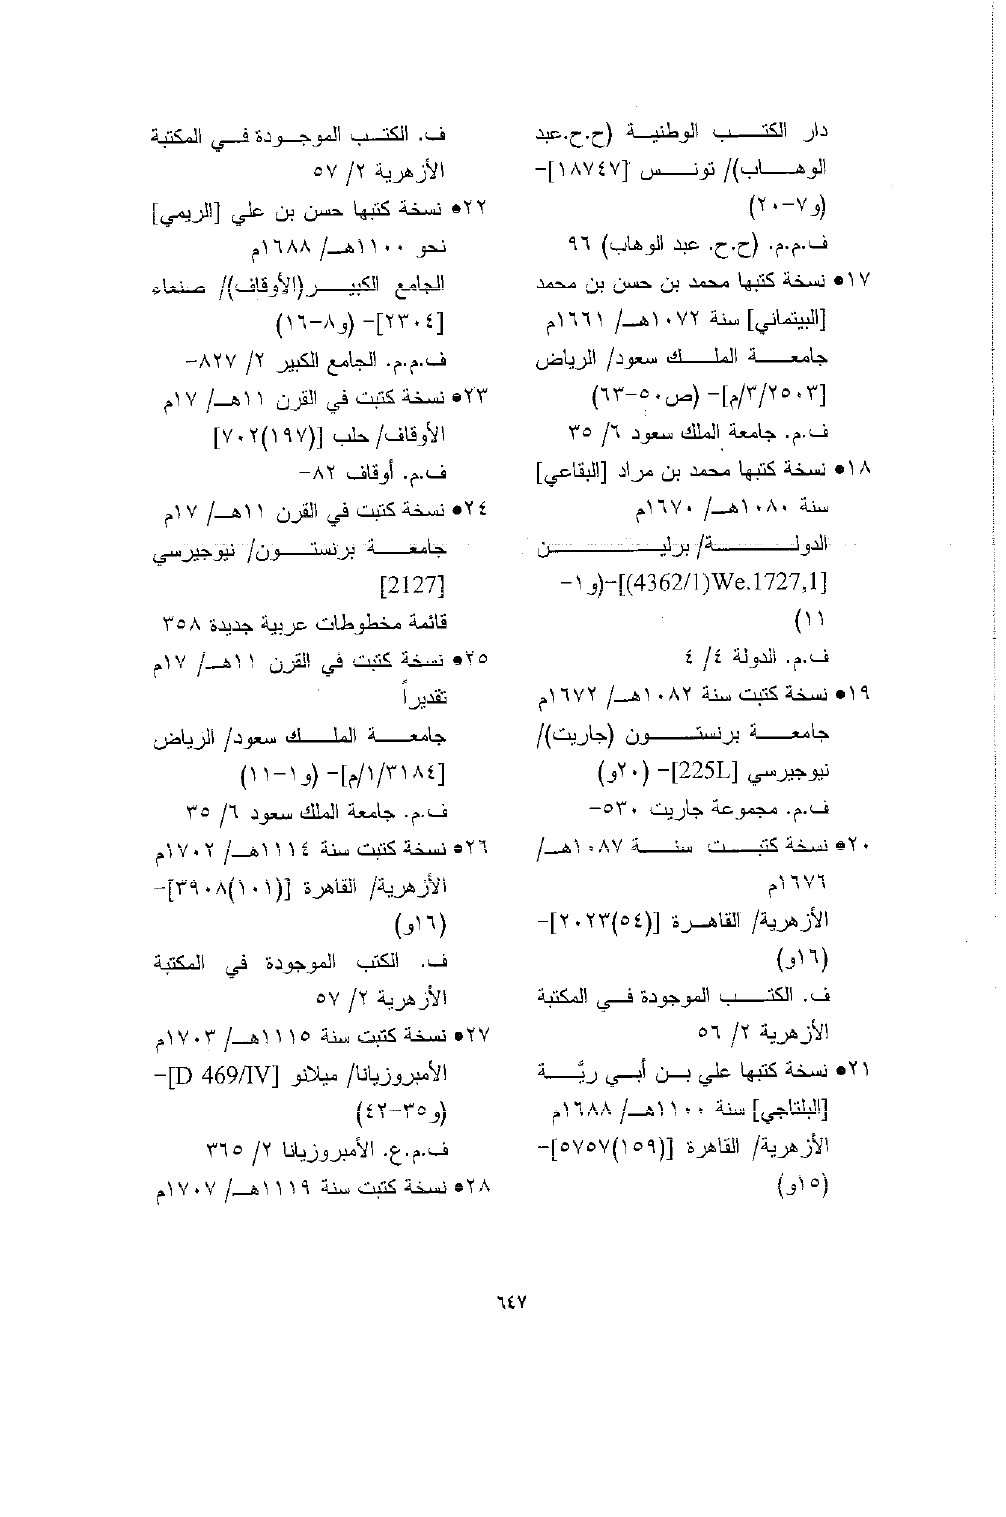 دار الكتب الوطنية (ح.ح.عبد
الوهاب)/ تونس [١٨٧٤٧]-
(و٧-٢٠)
ف.م.م. (ح.ح. عبد الوهاب) ٩٦
١٧• نسخة كتبها محمد بن حسن بن محمد
[البيتماني] سنة ١٠٧٢هـ/ ١٦٦١م
جامعة الملك سعود/ الرياض
[٣/٢٥٠٣/م]- (ص٥٠-٦٣)
ف.م. جامعة الملك سعود ٦/ ٣٥
١٨• نسخة كتبها محمد بن مراد [البقاعي]
سنة ١٠٨٠هـ/ ١٦٧٠م
الدولة/ برلين
[We.1727,1(4362/1)]-(و١-
١١)
ف.م. الدولة ٤/ ٤
١٩• نسخة كتبت سنة ١٠٨٢هـ/ ١٦٧٢م
جامعة برنستون (جاريت)/
نيوجيرسي [225L]- (٢٠و)
ف.م. مجموعة جاريت ٥٣٠-
٢٠• نسخة كتبت سنة ١٠٨٧هـ/
١٦٧٦م
الأزهرية/ القاهرة [(٥٤)٢٠٢٣]-
(١٦و)
ف. الكتب الموجودة في المكتبة
الأزهرية ٢/ ٥٦
٢١• نسخة كتبها علي بن أبي ريَّة
[البلتاجي] سنة ١١٠٠هـ/ ١٦٨٨م
الأزهرية/ القاهرة [(١٥٩)٥٧٥٧]-
(١٥و)
ف. الكتب الموجودة في المكتبة
الأزهرية ٢/ ٥٧
٢٢• نسخة كتبها حسن بن علي [الريمي]
نحو ١١٠٠هـ/ ١٦٨٨م
الجامع الكبير(الأوقاف)/ صنعاء
[٢٣٠٤]- (و٨-١٦)
ف.م.م. الجامع الكبير ٢/ ٨٢٧-
٢٣• نسخة كتبت في القرن ١١هـ/ ١٧م
الأوقاف/ حلب [(١٩٧)٧٠٢]
ف.م. أوقاف ٨٢-
٢٤• نسخة كتبت في القرن ١١هـ/ ١٧م
جامعة برنستون/ نيوجيرسي
[2127]
قائمة مخطوطات عربية جديدة ٣٥٨
٢٥• نسخة كتبت في القرن ١١هـ/ ١٧م
تقديراً
جامعة الملك سعود/ الرياض
[١/٣١٨٤/م]- (و١-١١)
ف.م. جامعة الملك سعود ٦/ ٣٥
٢٦• نسخة كتبت سنة ١١١٤هـ/ ١٧٠٢م
الأزهرية/ القاهرة [(١٠١)٣٩٠٨]-
(١٦و)
ف. الكتب الموجودة في المكتبة
الأزهرية ٢/ ٥٧
٢٧• نسخة كتبت سنة ١١١٥هـ/ ١٧٠٣م
الأمبروزيانا/ ميلانو [D 469/IV]-
(و٣٥-٤٢)
ف.م.ع. الأمبروزيانا ٢/ ٣٦٥
٢٨• نسخة كتبت سنة ١١١٩هـ/ ١٧٠٧م
٦٤٧